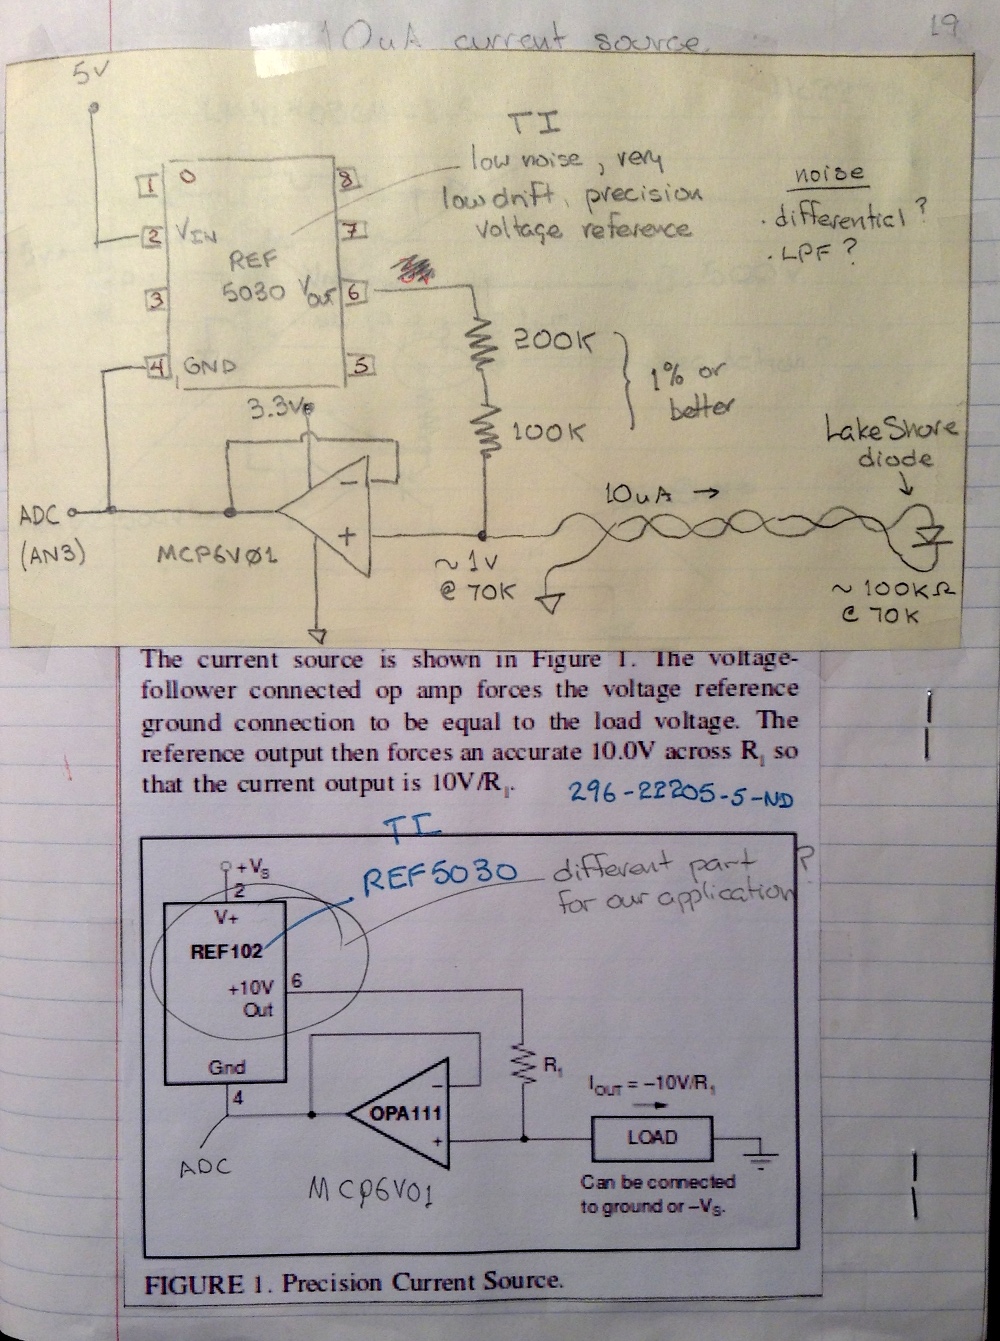 10uA current source
19
5V
TI
low noise, very
low drift, precision
voltage reference
noise
· differential?
· LPF?
1
8
2 VIN
7
REF
5030
3
VOUT 6
4 GND
5
200K
100K
1% or
better
3.3V
LakeShore
diode
10uA →
ADC
(AN3)
MCP6V01
-
+
~1V
@ 70K
~ 100KΩ
@ 70K
The current source is shown in Figure 1. The voltage-
follower connected op amp forces the voltage reference
ground connection to be equal to the load voltage. The
reference output then forces an accurate 10.0V across R1 so
that the current output is 10V/R1.
296-22205-5-ND
TI
REF5030
different part ?
for our application
+VS
2
V+
REF102
+10V
Out
6
Gnd
4
R1
OPA111
-
+
IOUT = –10V/R1
LOAD
Can be connected
to ground or –VS.
ADC
MCP6V01
FIGURE 1. Precision Current Source.